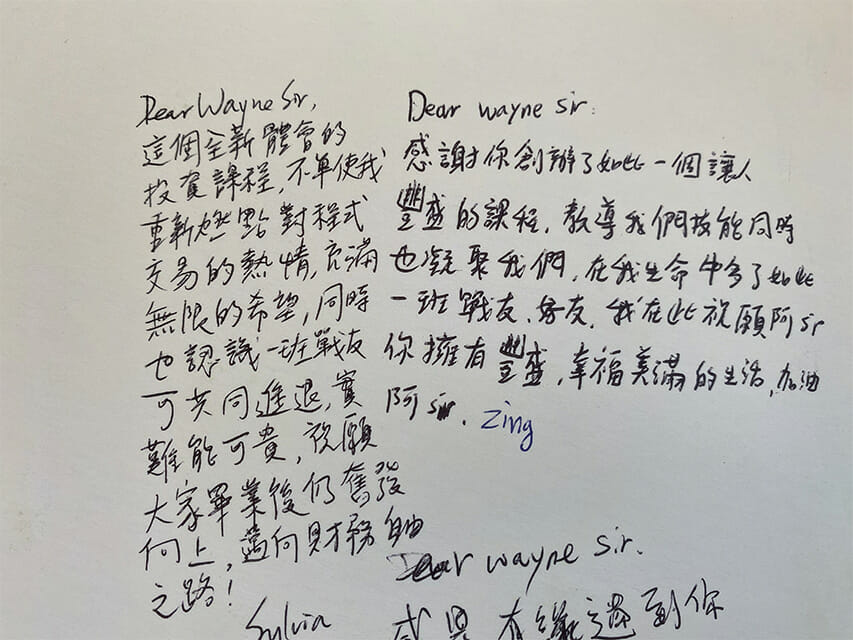 Dear Wayne Sir,
這個全新體會的
投資課程,不單使我
重新燃點對程式
交易的熱情,充滿
無限的希望,同時
也認識一班戰友
可共同進退,實
難能可貴,祝願
大家畢業後仍奮發
向上,邁向財務自由
之路!
Sylvia
Dear wayne sir:
感謝你創辦了如此一個讓人
豐盛的課程,教導我們技能同時
也凝聚我們,在我生命中多了如此
一班戰友、好友,我在此祝願阿sir
你擁有豐盛,幸福美滿的生活,加油
阿sir. Zing
Dear wayne sir.
有緣遇到你